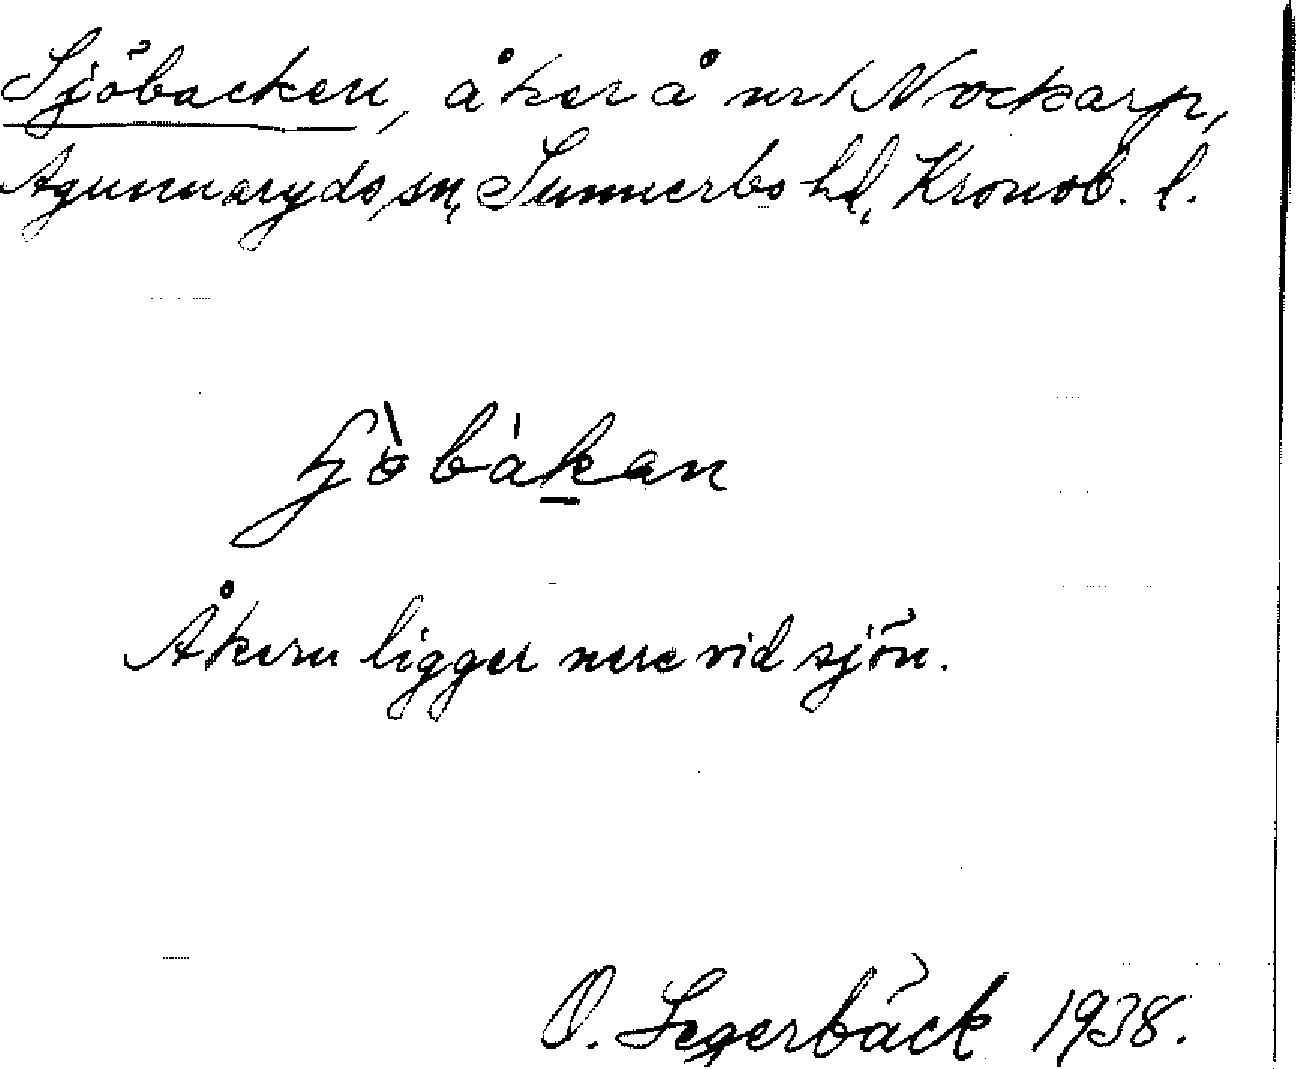 Sjöbacken, åker å nr 1 Nockarp,
Agunnaryds sn, Sunnerbo hd, Kronob. l.
ɧö̀bákan
Åkern ligger nere vid sjön.
O. Segerbäck 1938.